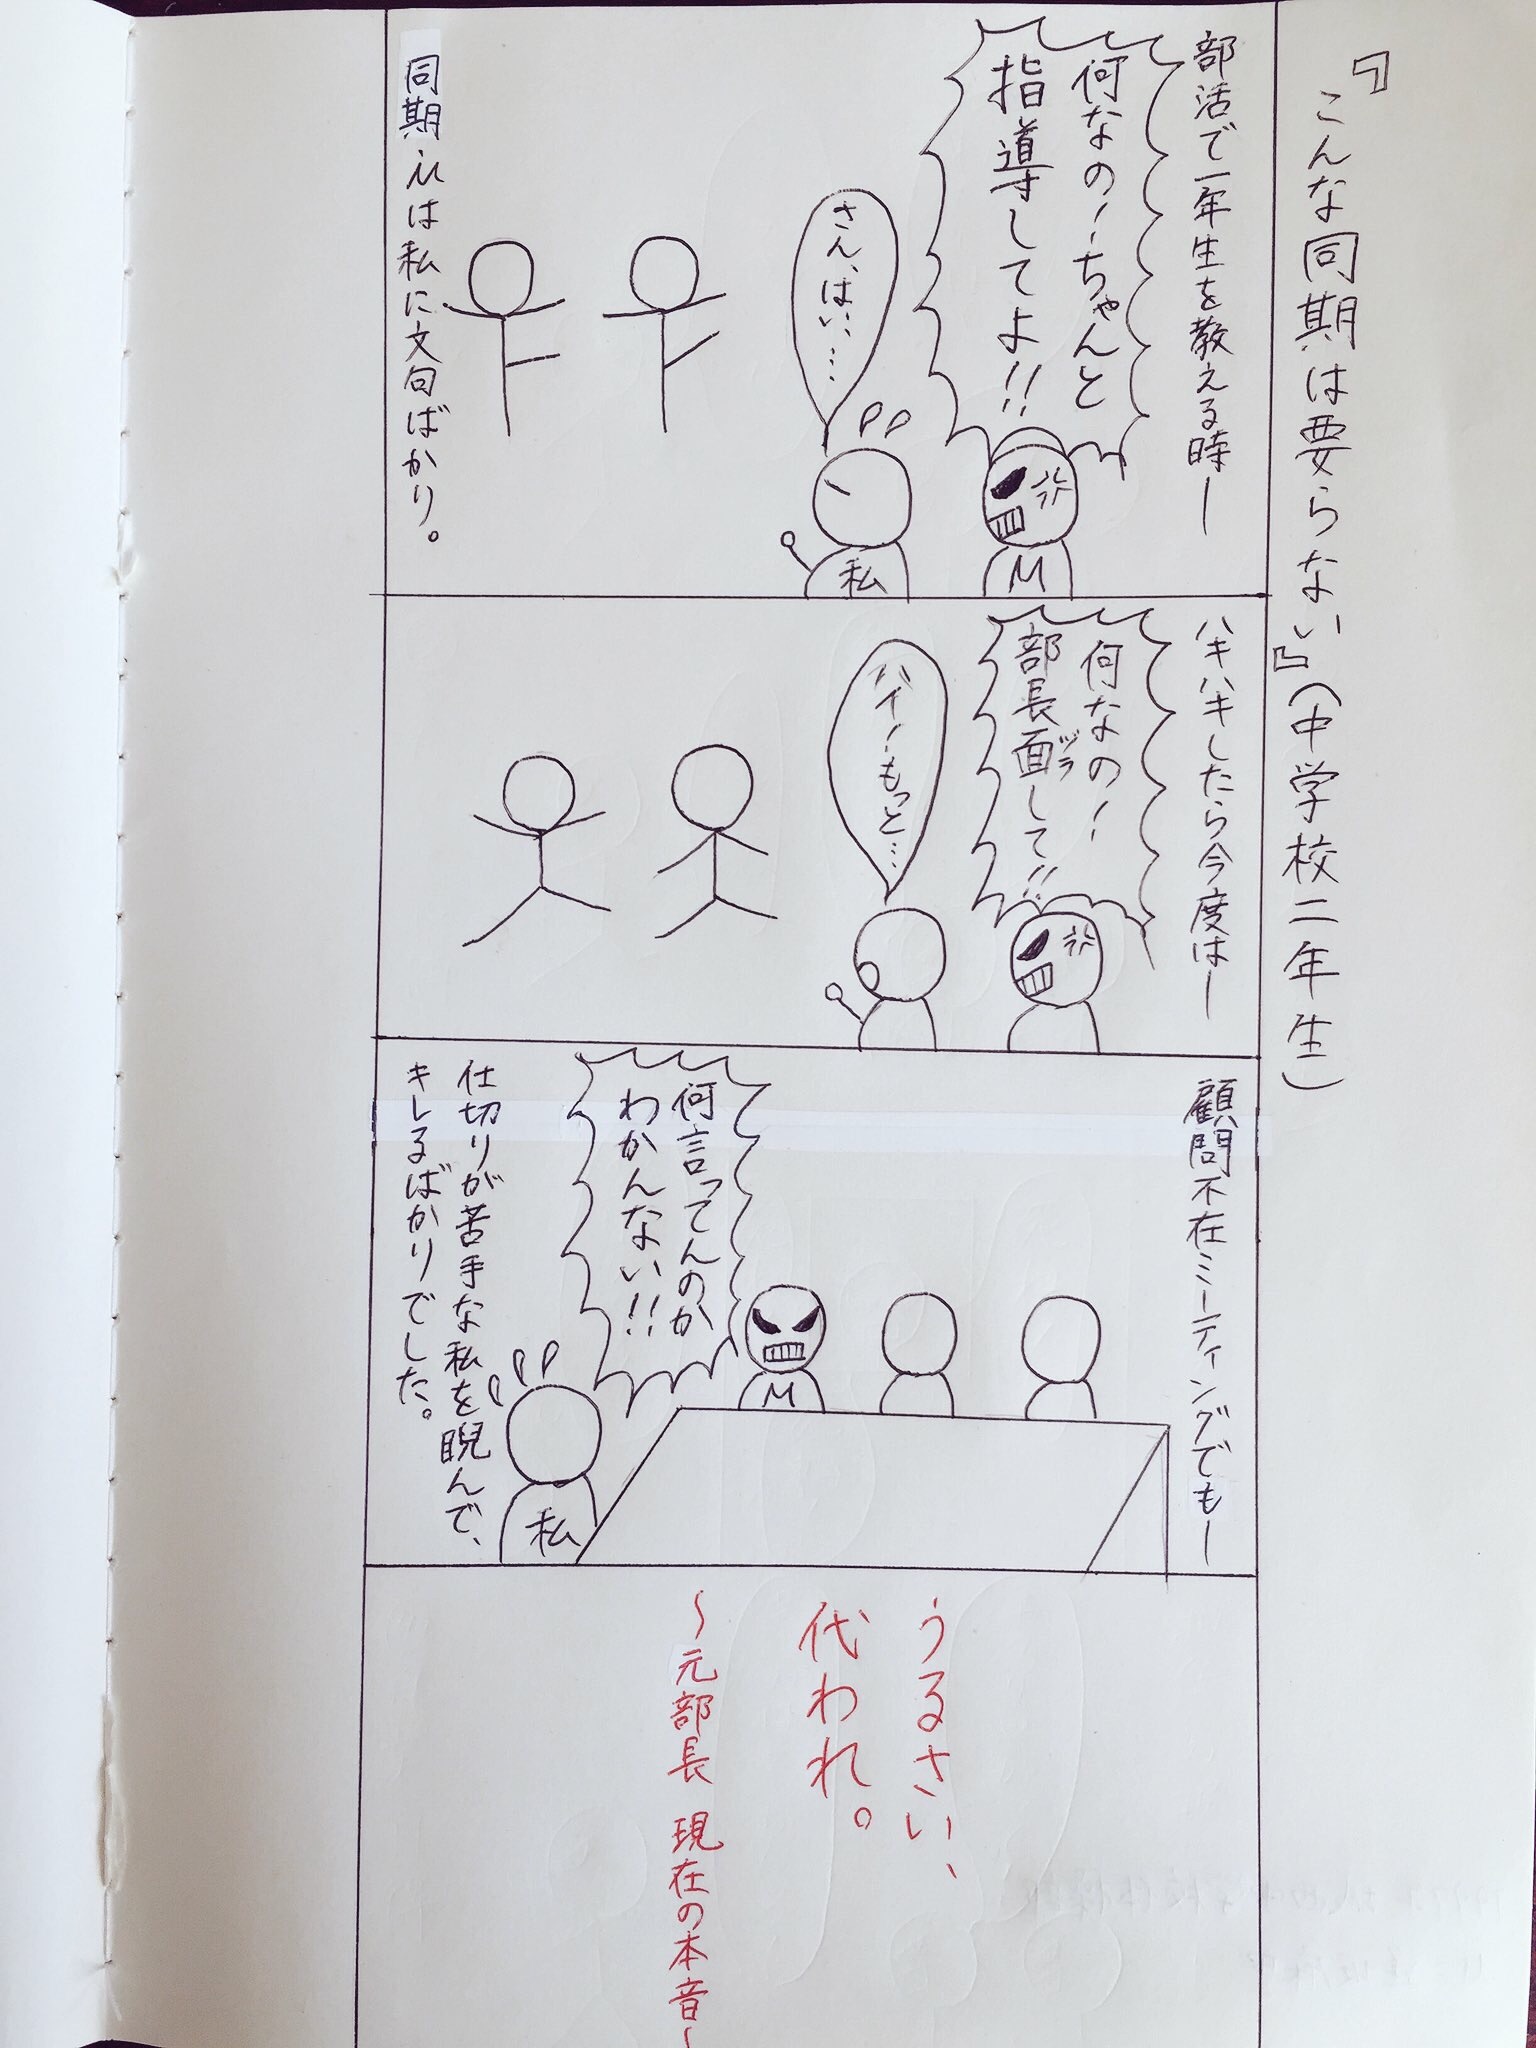 『こんな同期は要らない』(中学校二年生)
部活で一年生を教える時ー
何なの!ちゃんと
指導してよ!!
さん、はい、…
私
M
同期・Mは私に文句ばかり。
ハキハキしたら今度はー
何なの!
部長面して!!
ヅラ
ハイ!もっと…
顧問不在ミーティングでもー
何言ってんのか
わかんない!!
M
私
仕切りが苦手な私を睨んで、
キレるばかりでした。
うるさい、
代われ。
〜元部長 現在の本音〜